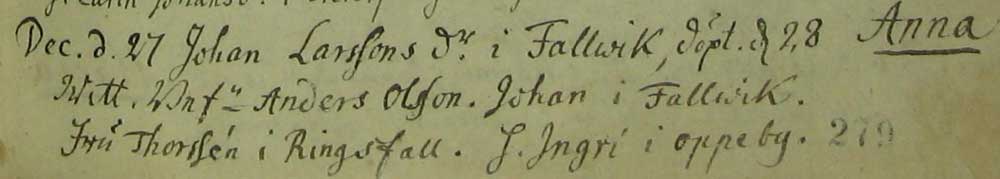 Dec. d. 27 Johan Larssons dr. i Fallwik, döpt. d 28 Anna
Witt. Anders Olsson. Johan i Fallwik.
Fru Thorssén i Ringsfall. J. Ingri i oppeby. 279